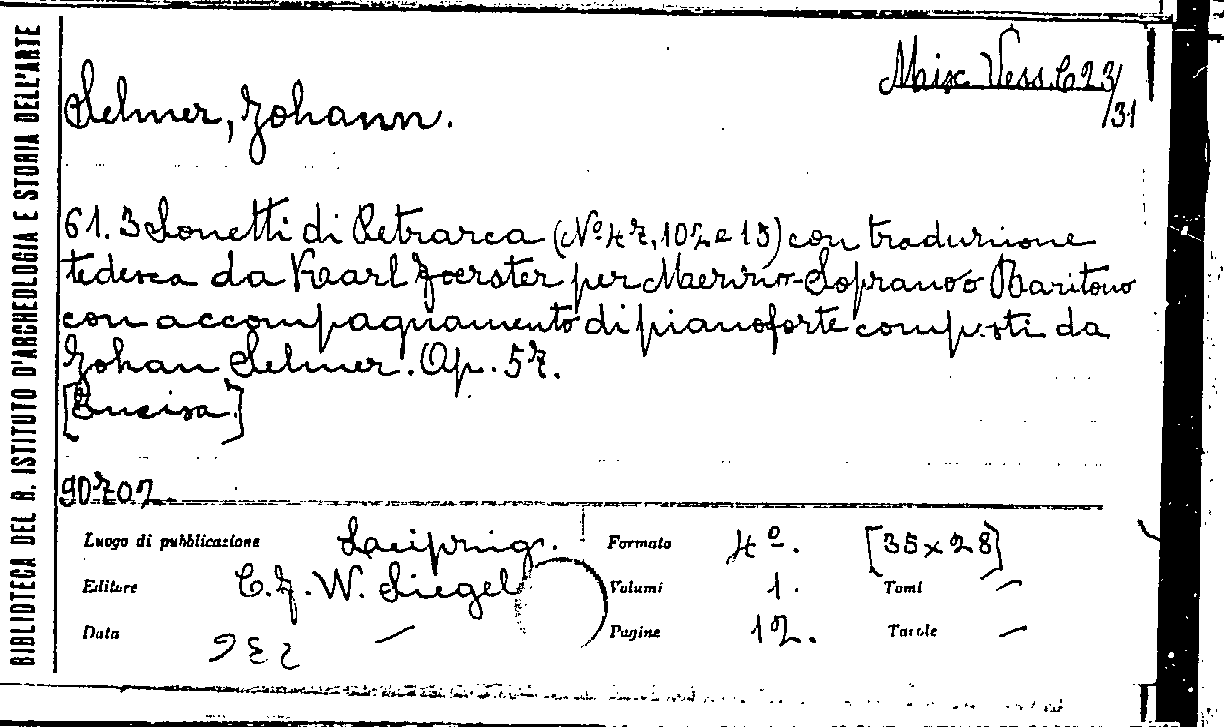 BIBLIOTECA DEL R. ISTITUTO D'ARCHEOLOGIA E STORIA DELL'ARTE
Misc. Vess. C 23/31
Selmer, Johann.
61. 3 Sonetti di Petrarca (Nº 47, 102 e 15) con traduzione
tedesca da Kaarl Foerster per Mezzo-Soprano o Baritono
con accompagnamento di pianoforte composti da
Johan Selmer. Op. 57.
[Incisa.]
90707.
Luogo di pubblicazione Leipzig. Formato 4º. [35 x 28]
Editore C. F. W. Siegel Volumi 1. Tomi —
Data — Pagine 12. Tavole —